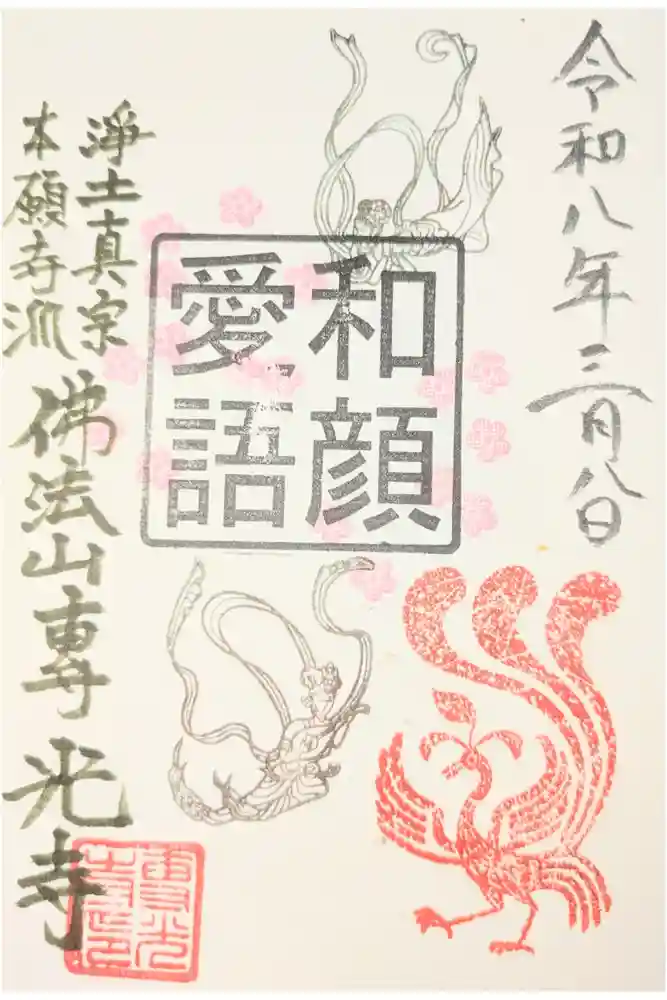 令和八年三月八日
和顔
愛語
淨土真宗
本願寺派
佛法山專光寺